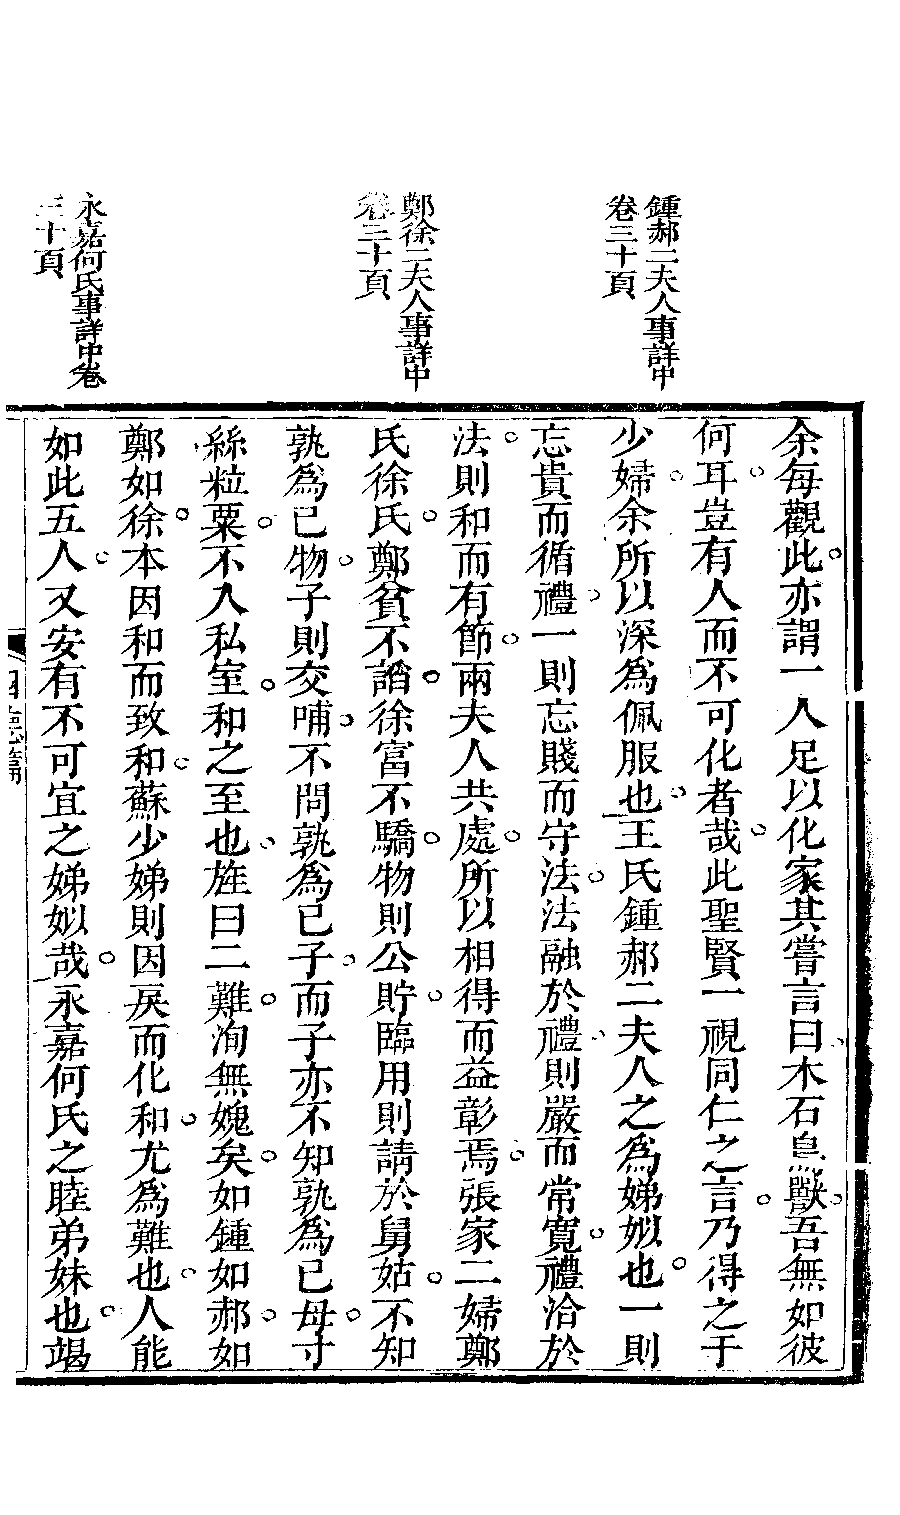 鍾郝二夫人事詳中
卷三十頁
鄭徐二夫人事詳中
卷三十頁
永嘉何氏事詳中卷
三十頁
余每觀此亦謂一人足以化家其嘗言曰木石鳥獸吾無如彼
何耳豈有人而不可化者哉此聖賢一視同仁之言乃得之于
少婦余所以深為佩服也王氏鍾郝二夫人之為娣姒也一則
忘貴而循禮一則忘賤而守法法融於禮則嚴而常寬禮洽於
法則和而有節兩夫人共處所以相得而益彰焉張家二婦鄭
氏徐氏鄭貧不謟徐富不驕物則公貯臨用則請於舅姑不知
孰為已物子則交哺不問孰為已子而子亦不知孰為已母寸
絲粒粟不入私室和之至也旌曰二難洵無媿矣如鍾如郝如
鄭如徐本因和而致和蘇少娣則因戾而化和尤為難也人能
如此五人又安有不可宜之娣姒哉永嘉何氏之睦弟妹也竭